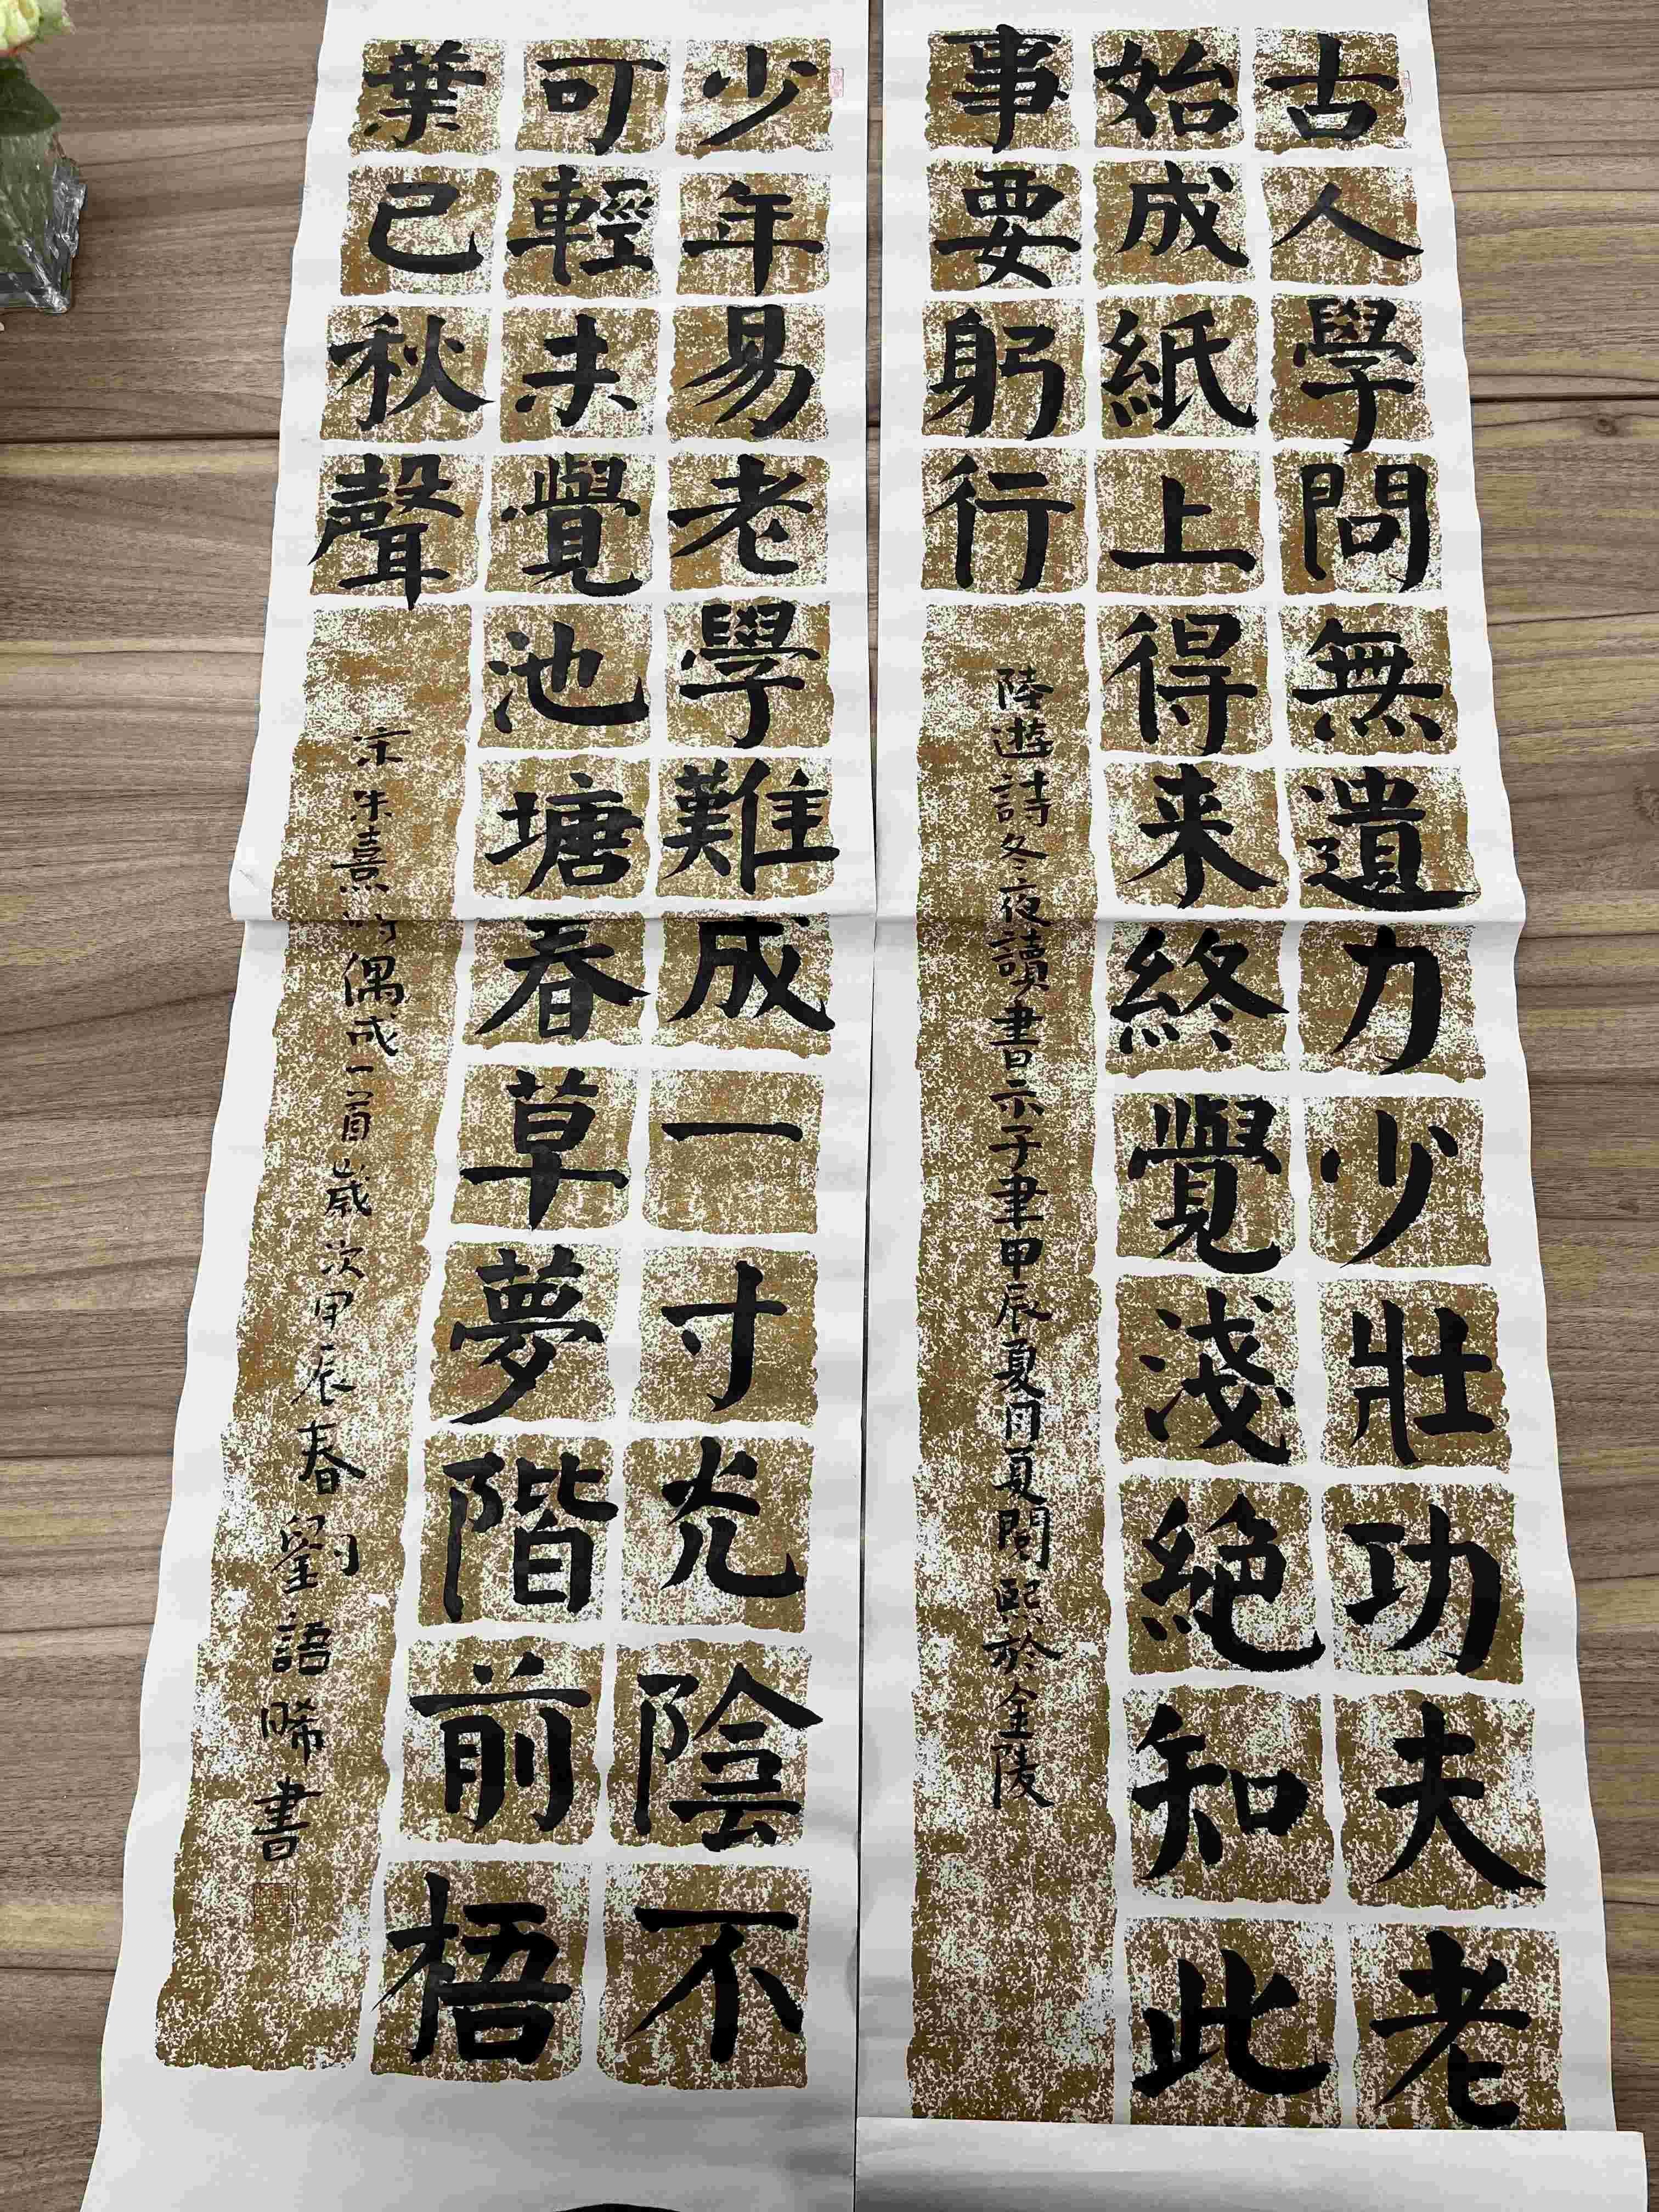 古人學問無遺力少壯功夫老
始成紙上得来終覺淺絕知此
事要躬行
陸遊詩冬夜讀書示子聿甲辰夏夏閱熙於金陵
少年易老學難成一寸光陰不
可輕未覺池塘春草夢階前梧
葉已秋聲
宋朱熹詩偶成一首歲次甲辰春劉語晞書